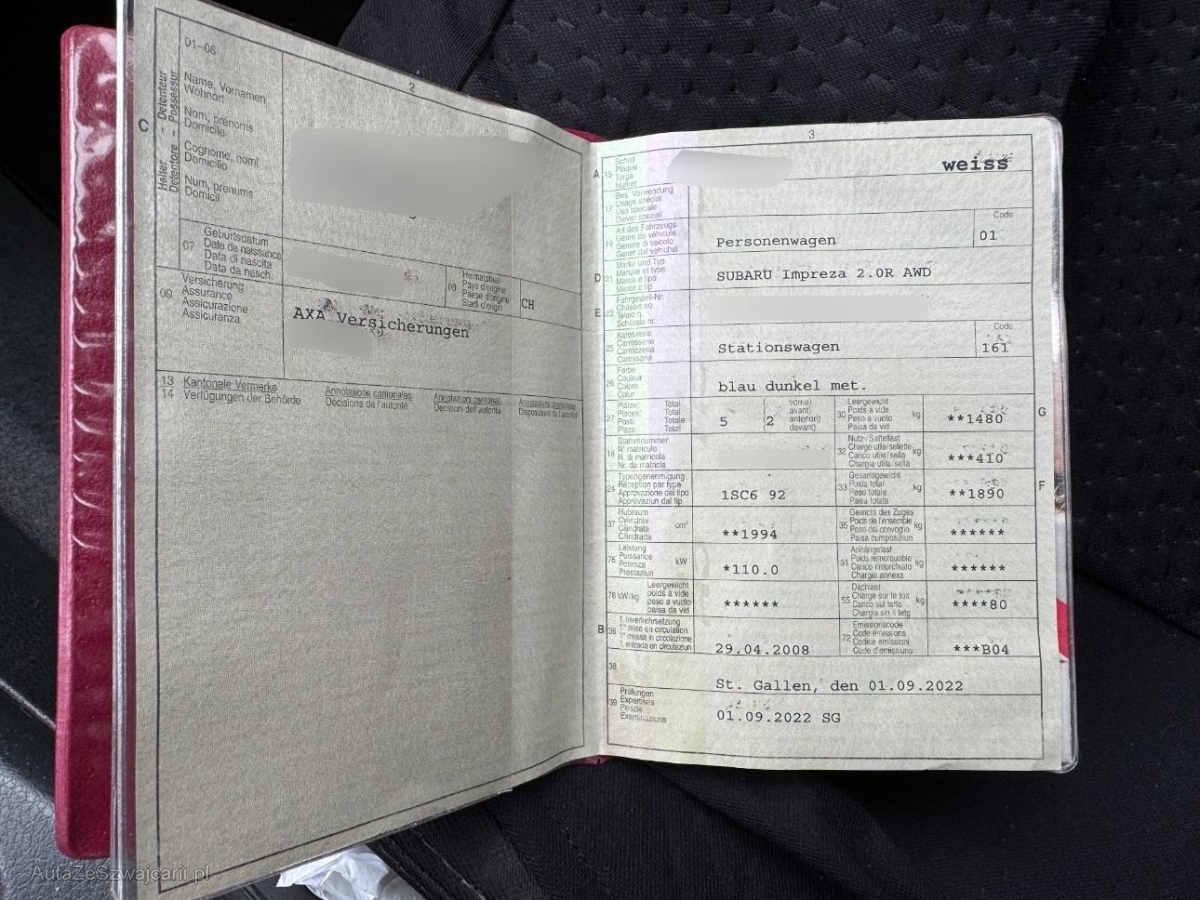 2
01–06
Halter - Detenteur
Detentore - Possessur
Name, Vornamen
Wohnort
Nom, prénoms
Domicile
C
Cognome, nomi
Domicilio
Num, prenums
Domicil
07
Geburtsdatum
Date de naissance
Data di nascita
Data da nasch.
08
Heimatstaat
Pays d'origine
Paese d'origine
Stadi d'origin
CH
09
Versicherung
Assurance
Assicurazione
Assicuranza
AXA Versicherungen
13 Kantonale Vermerke
14 Verfügungen der Behörde
Annotations cantonales
Décisions de l'autorité
Annotazioni cantonali
Decisioni dell'autorità
3
A 15
Schild
Plaque
Targa
Numer
weiss
17
Bes. Verwendung
Usage spécial
Uso speciale
Diever spezial
19
Art des Fahrzeugs
Genre de véhicule
Genere di veicolo
Gener dal vehichel
Personenwagen
Code
01
D 21
Marke und Typ
Marque et type
Marca e tipo
Marca e tip
SUBARU Impreza 2.0R AWD
E 23
Fahrgestell-Nr.
Châssis no
Telaio n.
Schassis nr
25
Karosserie
Carrosserie
Carrozzeria
Carossaria
Stationswagen
Code
161
26
Farbe
Couleur
Colore
Colur
blau dunkel met.
27
Plätze: Total
Places: Total
Posti: Totale
Plazs: Total
5 ( 2
vorne)
avant)
anteriori)
davant)
30
Leergewicht
Poids à vide
Peso a vuoto
Paisa da vid
kg
**1480
G
18
Stammnummer
N° matricule
N. di matricola
Nr. da matricla
32
Nutz-/Sattellast
Charge utile/sellette
Carico utile/sella
Chargia utila/sella
kg
***410
24
Typengenehmigung
Réception par type
Approvazione del tipo
Approvaziun dal tip
1SC6 92
33
Gesamtgewicht
Poids total
Peso totale
Paisa totala
kg
**1890
F
37
Hubraum
Cylindrée
Cilindrata
Cilindrada
cm³
**1994
35
Gewicht des Zuges
Poids de l'ensemble
Peso del convoglio
Paisa cumposiziun
kg
******
76
Leistung
Puissance
Potenza
Prestaziun
kW
*110.0
31
Anhängelast
Poids remorquable
Carico rimorchiato
Chargia annexa
kg
******
78 kW/kg
Leergewicht
poids à vide
peso a vuoto
paisa da vid
******
55
Dachlast
Charge sur le toit
Carico sul tetto
Chargia sin il tetg
kg
****80
B 36
1. Inverkehrsetzung
1re mise en circulation
1a messa in circolazione
1. entrada en circulaziun
29.04.2008
72
Emissionscode
Code émissions
Codice emissioni
Code d'emissiuns
***B04
38
St. Gallen, den 01.09.2022
39
Prüfungen
Expertises
Perizie
Examinaziuns
01.09.2022 SG
AutaZeSzwajcarii.pl